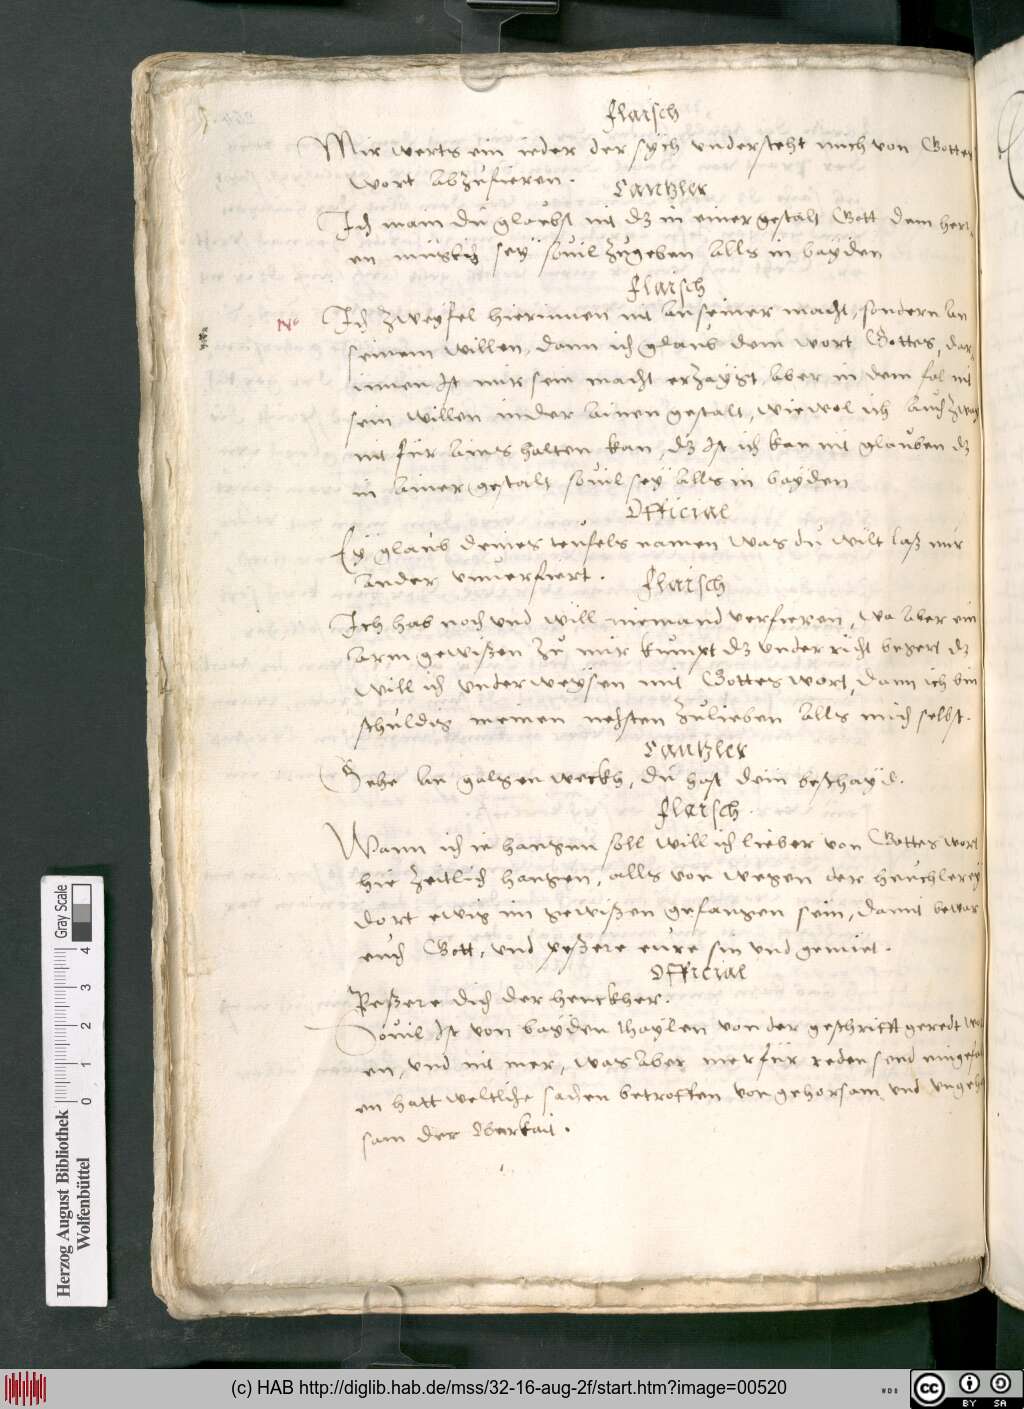 flaisch
Mir werts ein ieder der sych understeht mich von Gottes
wort abzufieren.
Cantzler
Ich main du glaubst nit dz in einer gestalt Gott dem herr-
en muglich sey souil zugeben alls in bayden
flaisch
No Ich zweyfel hierinnen nit an seiner macht, sondern an
seinem willen, dann ich glaub dem wort Gottes, dar-
innen ist mir sein macht erzaygt, aber in dem fal nit
sein willen in der ainen gestalt, wiewol ich auch zway
nit für ains halten kan, dz ist ich kan nit glauben dz
in ainer gestalt souil sey alls in bayden
Official
Ey glaub deines teufels namen was du wilt laß nur
ander unuerfiert.
flaisch
Ich hab noch und will niemand verfieren, wa aber ein
arm gewißen zu mir kumpt dz underricht begert dz
will ich underweysen mit Gottes wort, dann ich bin
schuldig meinen nehsten zulieben alls mich selbst.
Cantzler
Gehe an galgen weckh, du hast dein beschayd.
flaisch.
Wann ich ie hangen soll will ich lieber von Gottes wort
hie zeitlich hangen, alls von wegen der heuchlerey
dort ewig im gewißen gefangen sein, damit bewar
euch Gott, und peßere eure sin und gemiet.
Official
Peßere dich der henckher.
Souil ist von bayden thaylen von der geschrifft geredt
en, und nit mer, was aber mer für reden send
en hatt weltliche sachen betroffen von gehorsam und
sam der Oberkait.
Herzog August Bibliothek
Wolfenbüttel
0 1 2 3 4
Gray Scale
(c) HAB http://diglib.hab.de/mss/32-16-aug-2f/start.htm?image=00520
WDB
cc BY SA